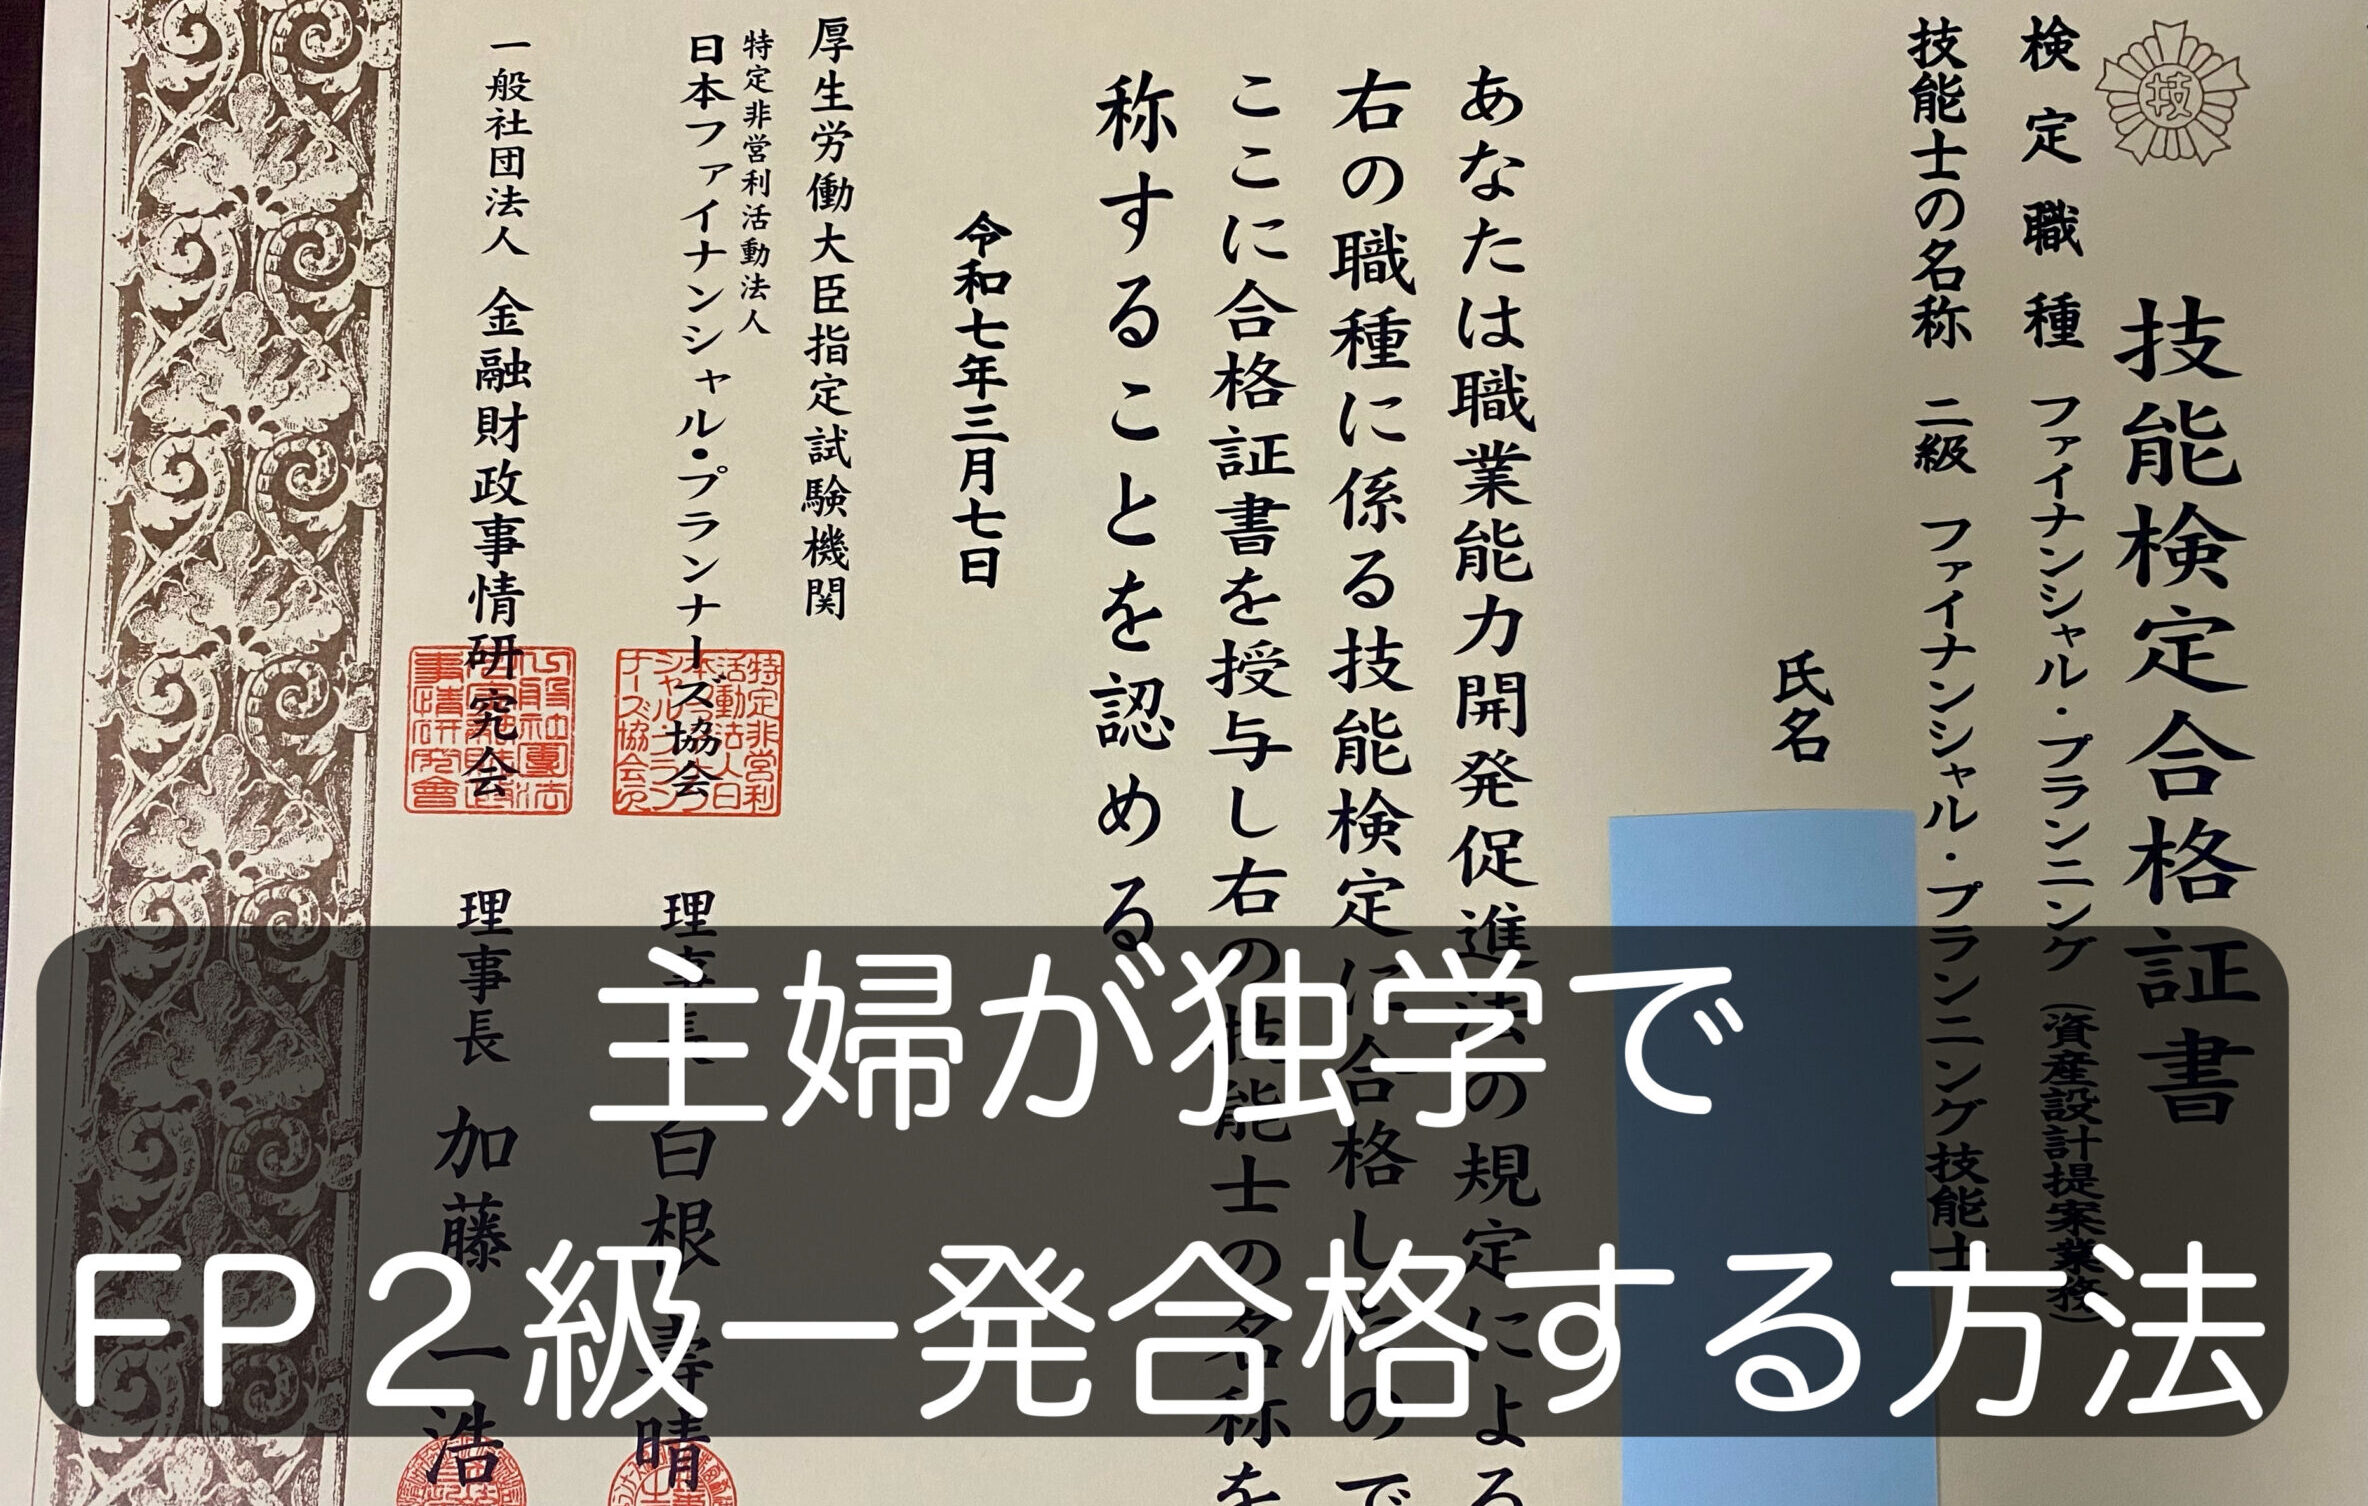 技
技能検定合格証書
検定職種 ファイナンシャル・プランニング(資産設計提案業務)
技能士の名称 二級 ファイナンシャル・プランニング技能士
氏名
あなたは職業能力開発促進法の規定による
右の職種に係る技能検定に合格したので
ここに合格証書を授与し右の技能士の名称を
称することを認める
令和七年三月七日
厚生労働大臣指定試験機関
特定非営利活動法人
日本ファイナンシャル・プランナーズ協会
理事長 白根壽晴
一般社団法人 金融財政事情研究会
理事長 加藤一浩
主婦が独学で
FP2級一発合格する方法